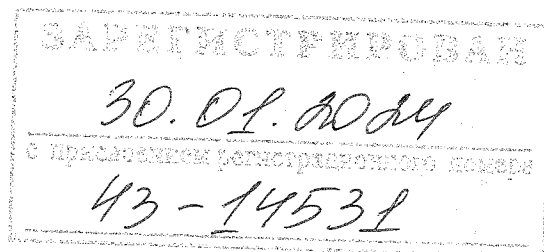 ЗАРЕГИСТРИРОВАН
30.01.2024
с присвоением регистрационного номера
43-14531